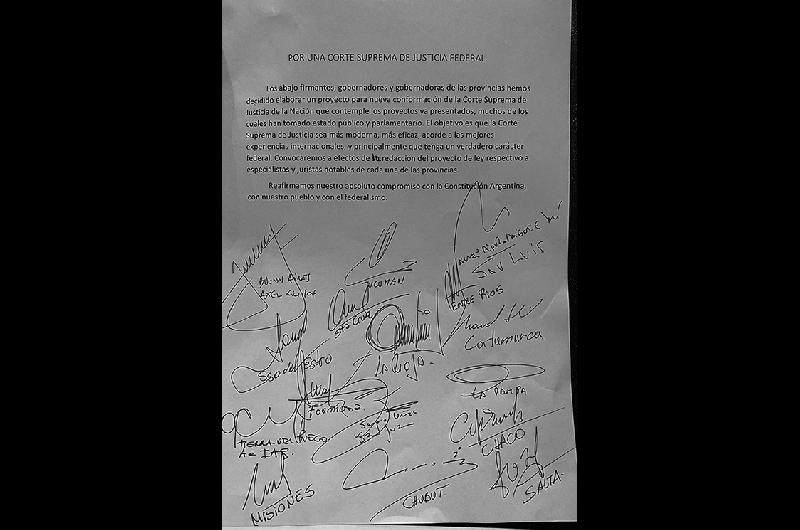 POR UNA CORTE SUPREMA DE JUSTICIA FEDERAL
Los abajo firmantes, gobernadores y gobernadoras de las provincias hemos
decidido elaborar un proyecto para nueva conformación de la Corte Suprema de
Justicia de la Nación que contemple los proyectos ya presentados, muchos de los
cuales han tomado estado público y parlamentario. El objetivo es que la Corte
Suprema de Justicia sea más moderna, más eficaz, acorde a las mejores
experiencias internacionales, y principalmente que tenga un verdadero carácter
federal. Convocaremos a efectos de la redacción del proyecto de ley respectivo a
especialistas y juristas notables de cada una de las provincias.
Reafirmamos nuestro absoluto compromiso con la Constitución Argentina,
con nuestro pueblo y con el federalismo.
SAN LUIS
TUCUMAN
ENTRE RIOS
STA CRUZ
CATAMARCA
LA RIOJA
LA PAMPA
FORMOSA
TIERRA DEL FUEGO
A e IAS
CHACO
SALTA
CHUBUT
MISIONES